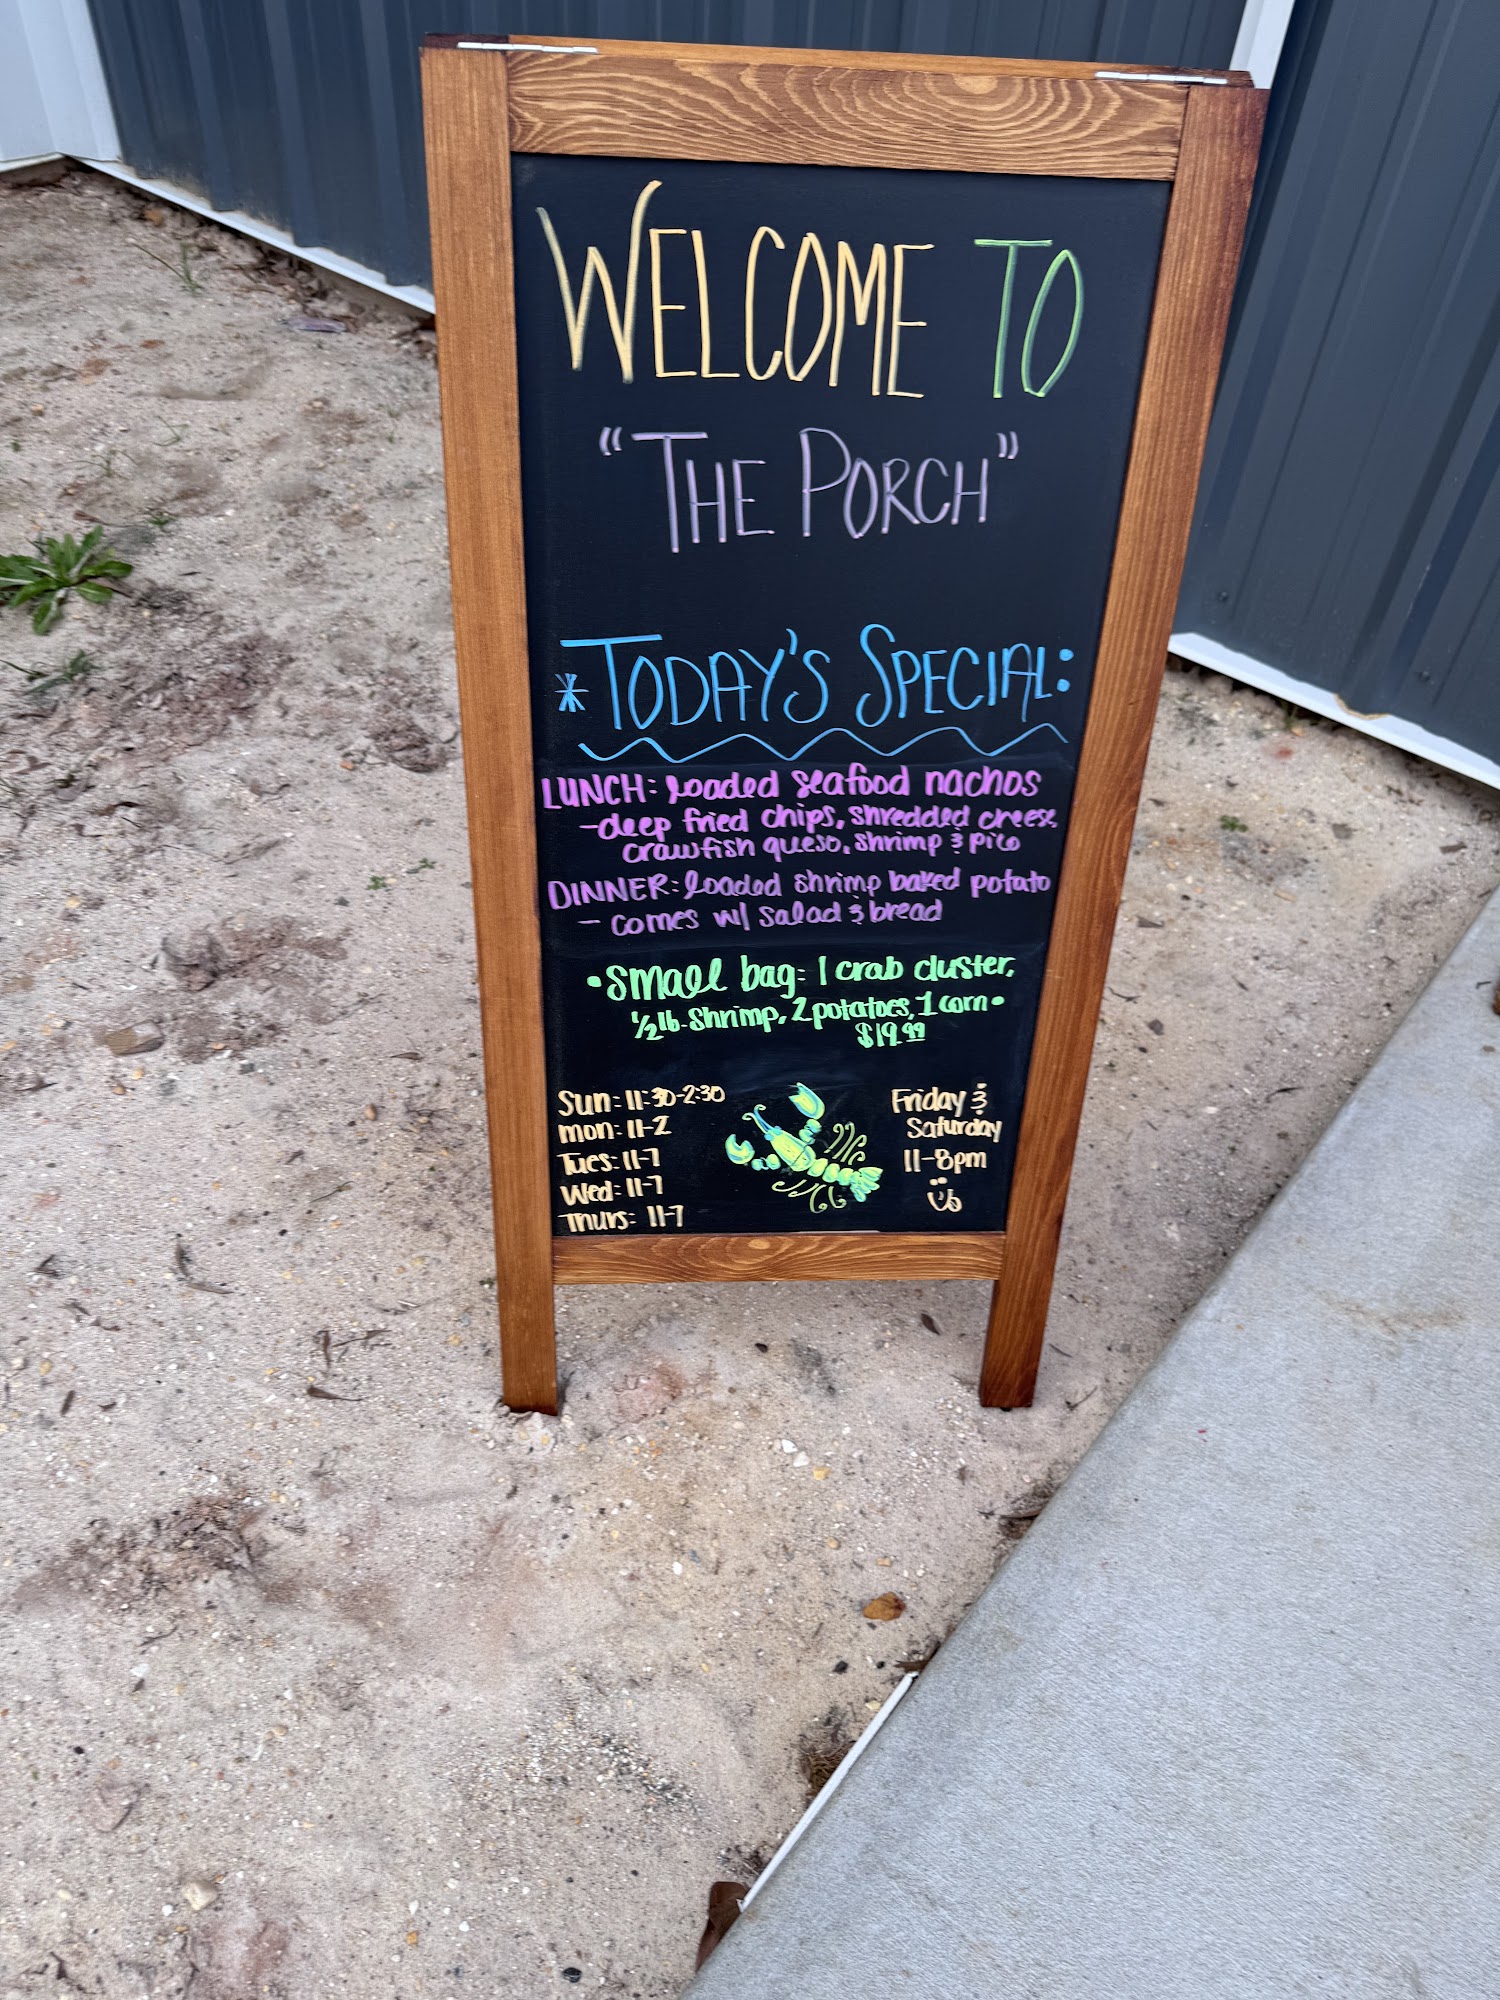 WELCOME TO
"THE PORCH"
*TODAY'S SPECIAL:
LUNCH: loaded seafood nachos
-deep fried chips, shredded cheese,
crawfish queso, shrimp & pico
DINNER: loaded shrimp baked potato
- comes w/ salad & bread
•small bag: 1 crab cluster,
1/2 lb. shrimp, 2 potatoes, 1 corn•
$19.99
Sun: 11:30-2:30
Mon: 11-2
Tues: 11-7
Wed: 11-7
Thurs: 11-7
Friday &
Saturday
11-8pm